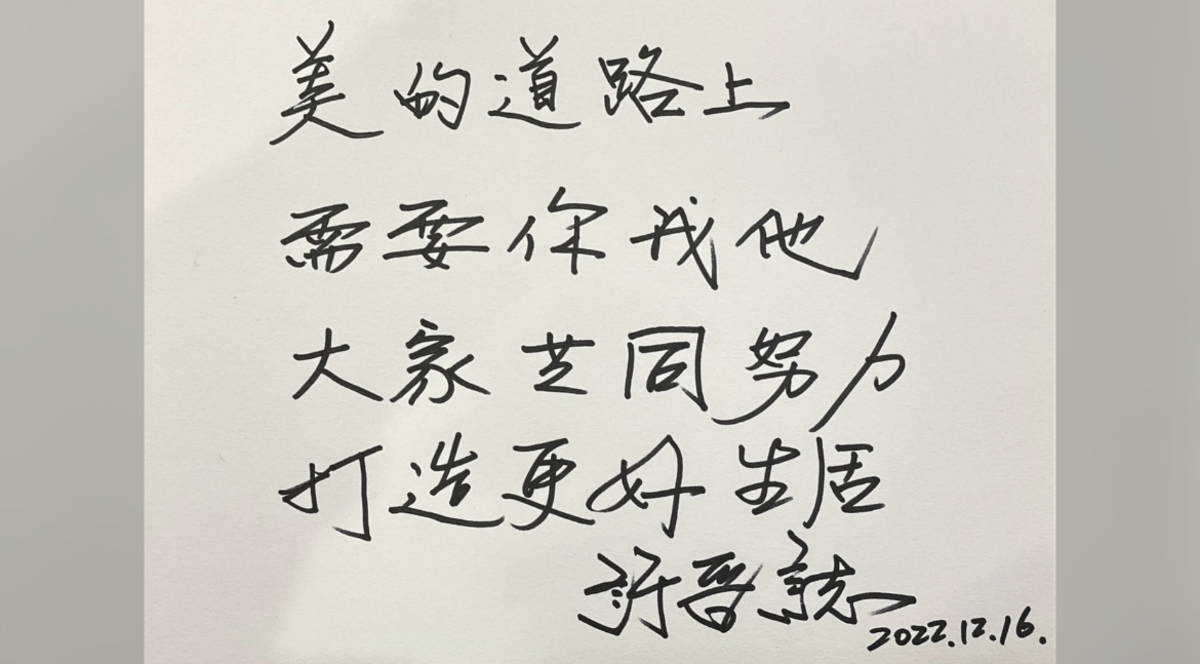 美的道路上
需要你我他
大家共同努力
打造更好生活
許晉誌
2022.12.16.